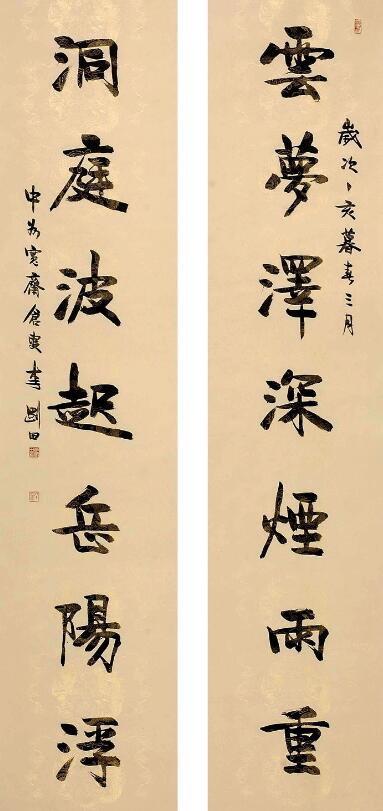 歲次亥暮春三月
雲夢澤深煙雨重
洞庭波起岳陽浮
中州寬齋叟李剛田